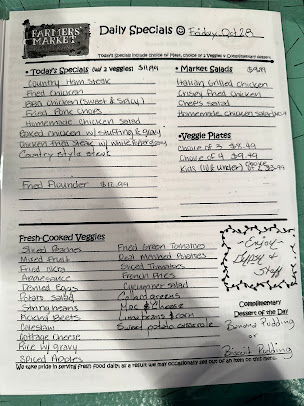 FARMERS MARKET
Daily Specials ☺ Friday Oct 28
Today's Specials include choice of Meat, choice of 2 Veggies & Complimentary dessert
• Today's Specials (w/ 2 veggies) $11.99
Country Ham Steak
Fried Chicken
BBQ Chicken (Sweet & Spicy)
Fried Pork Chops
Homemade Chicken Salad
Baked Chicken w/ stuffing & gravy
Chicken Fried Steak w/ white & brown gravy
Country style steak
Fried Flounder $12.99
• Market Salads $9.49
Italian Grilled Chicken
Crispy Fried Chicken
Chef's Salad
Homemade chicken salad
•Veggie Plates
Choice of 3 $8.49
Choice of 4 $9.49
Kids (10 & under) choice of 2
Fresh-Cooked Veggies
Mixed Fruit
Fried Okra
Applesauce
Deviled Eggs
Potato Salad
String beans
Pickled Beets
Coleslaw
Cottage Cheese
Rice w/ gravy
Spiced Apples
Fried Green Tomatoes
Real Mashed Potatoes
Sliced Tomatoes
French Fries
Cucumber salad
Collard greens
Mac & Cheese
Lima beans & corn
Sweet potato casserole
Enjoy
&
Staff
Complimentary
Desserts of the Day
Banana Pudding
or
Biscuit Pudding
We take pride in serving fresh food daily, as a result we may occasionally sell out of an item on this menu.